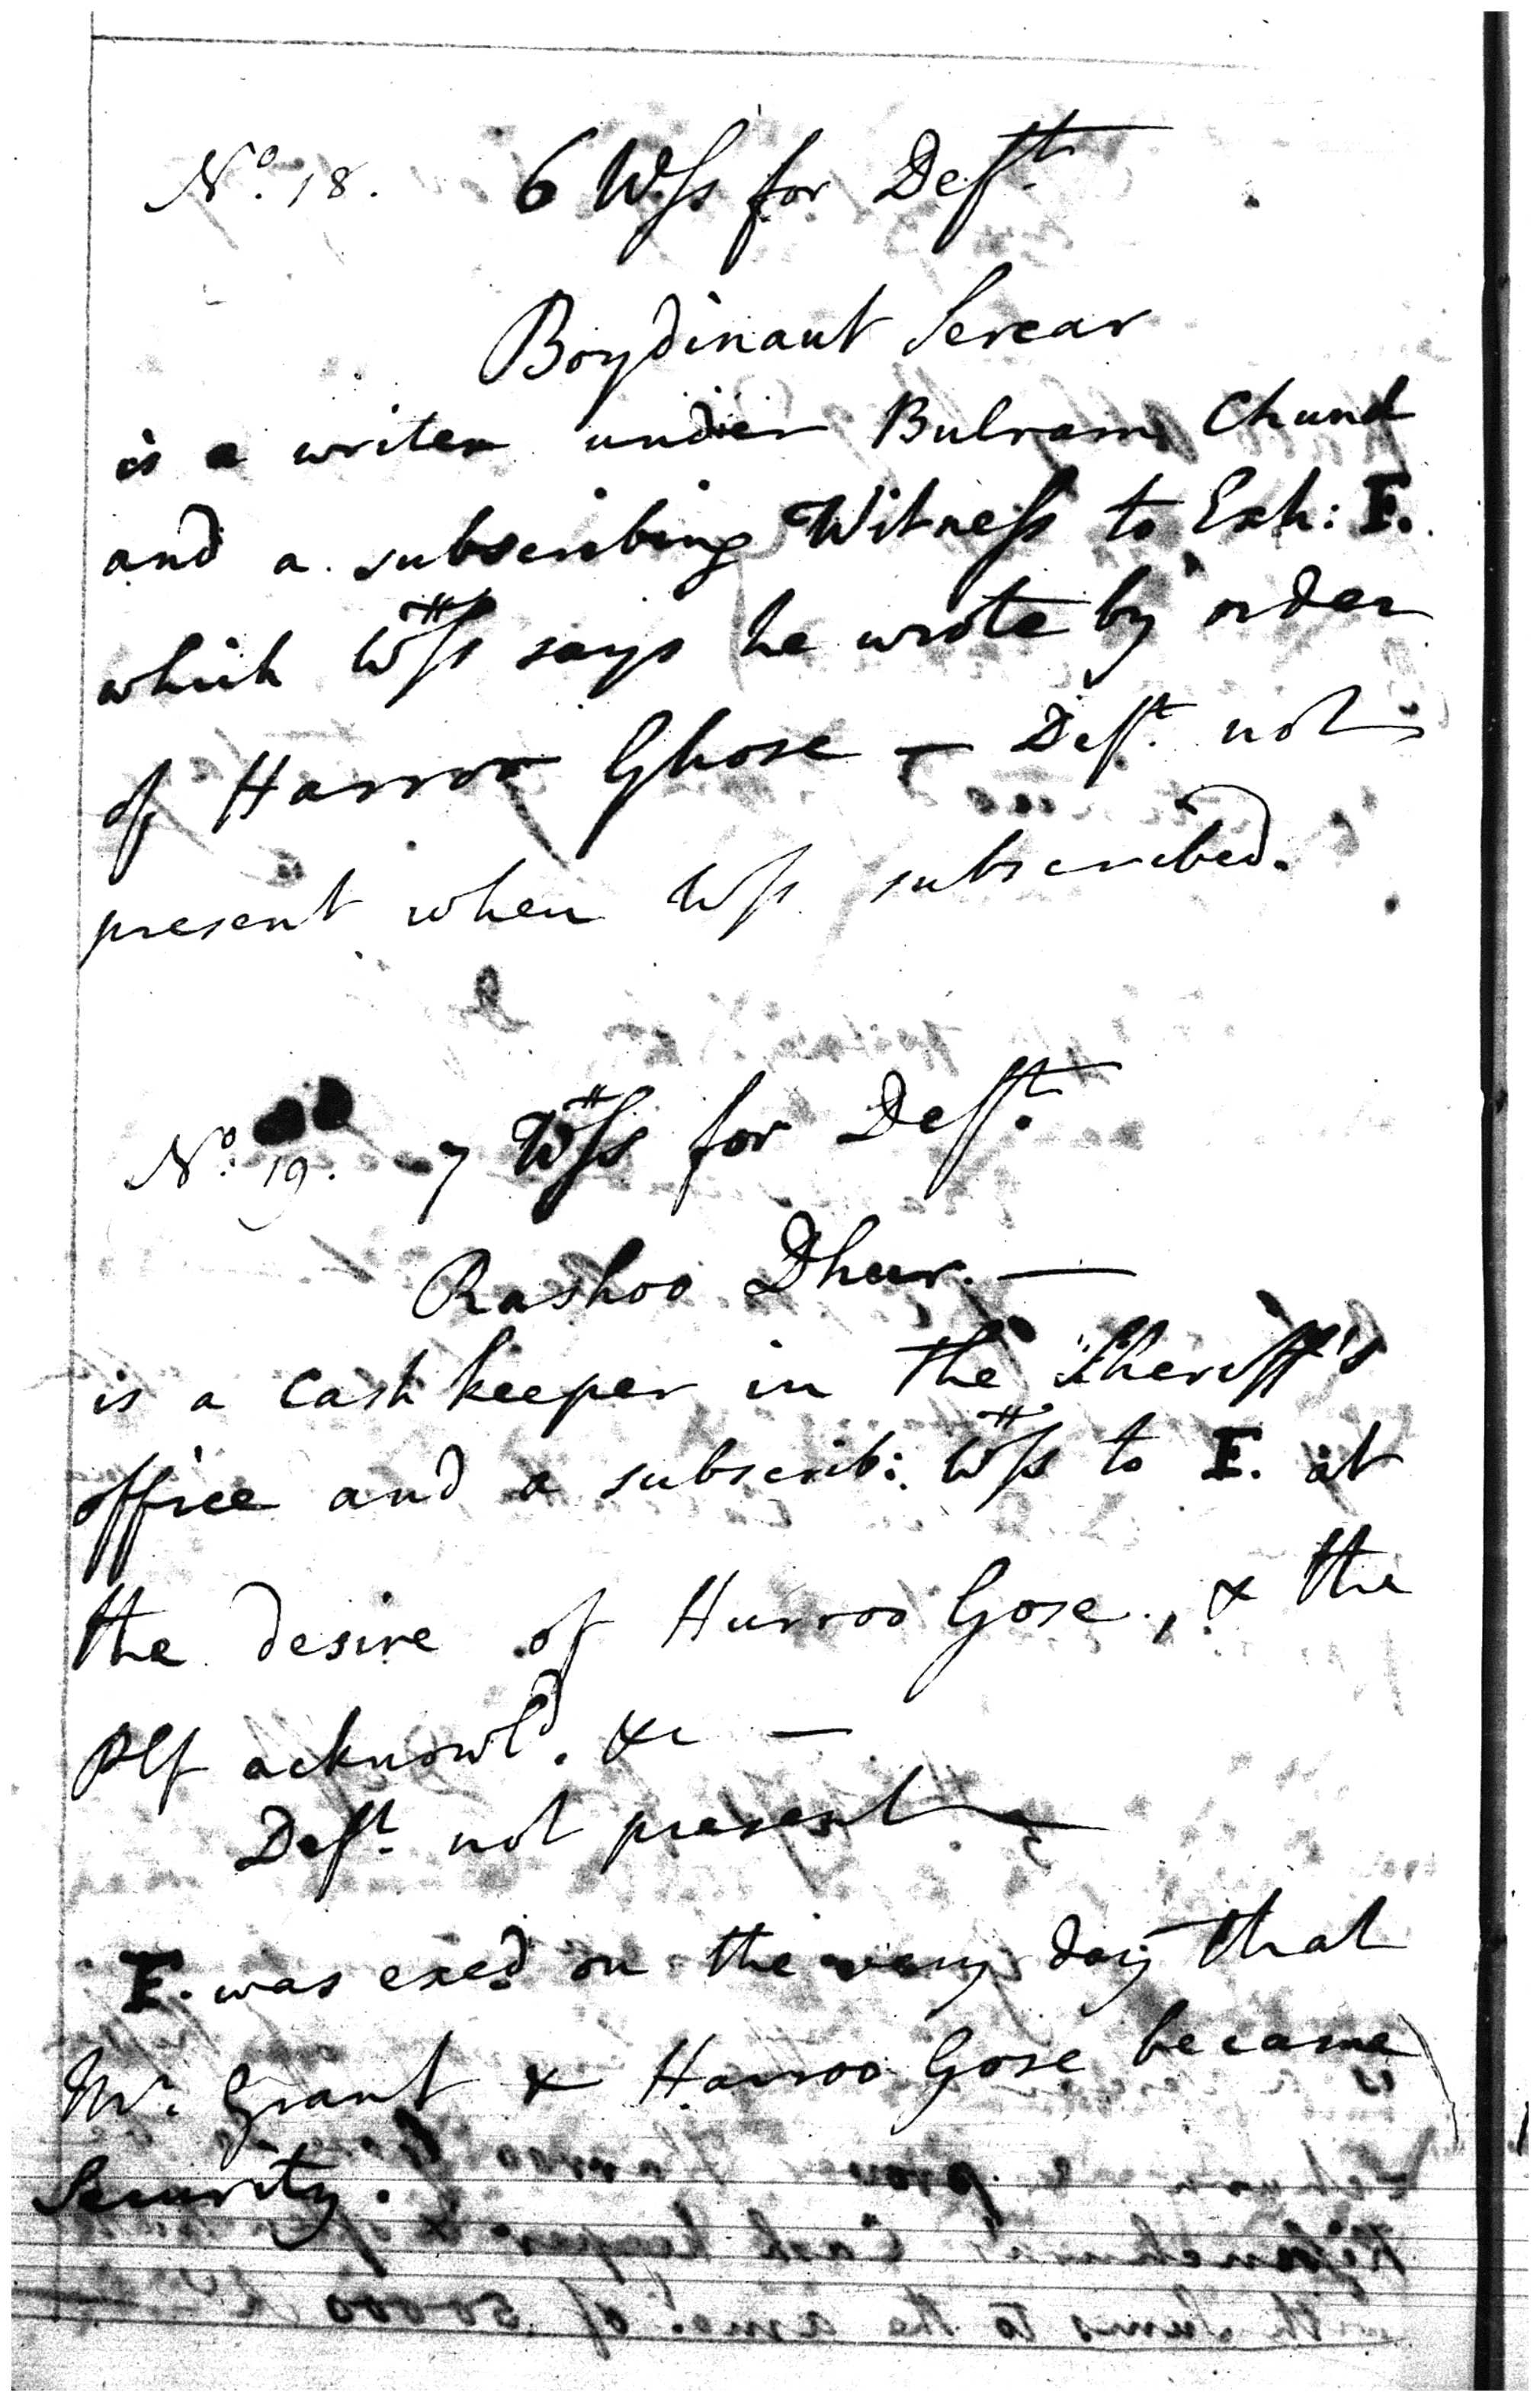 No. 18. 6 Wss for Deft.
Boydinaut Sercar
is a writer under Bulram Chund
and a subscribing Witness to Exh: F.
which Wss says he wrote by order
of Harroo Ghose — Deft. not
present when Wss subscribed.
No. 19. 7 Wss for Deft.
Rashoo Dhur. —
is a cash keeper in the Sheriff's
office and a subscrib: Wss to F. at
the desire of Hurroo Gose, & the
Plf acknowld. &c —
Deft. not present —
F. was exed. on the very day that
Mr. Grant & Harroo Gose became
Security.